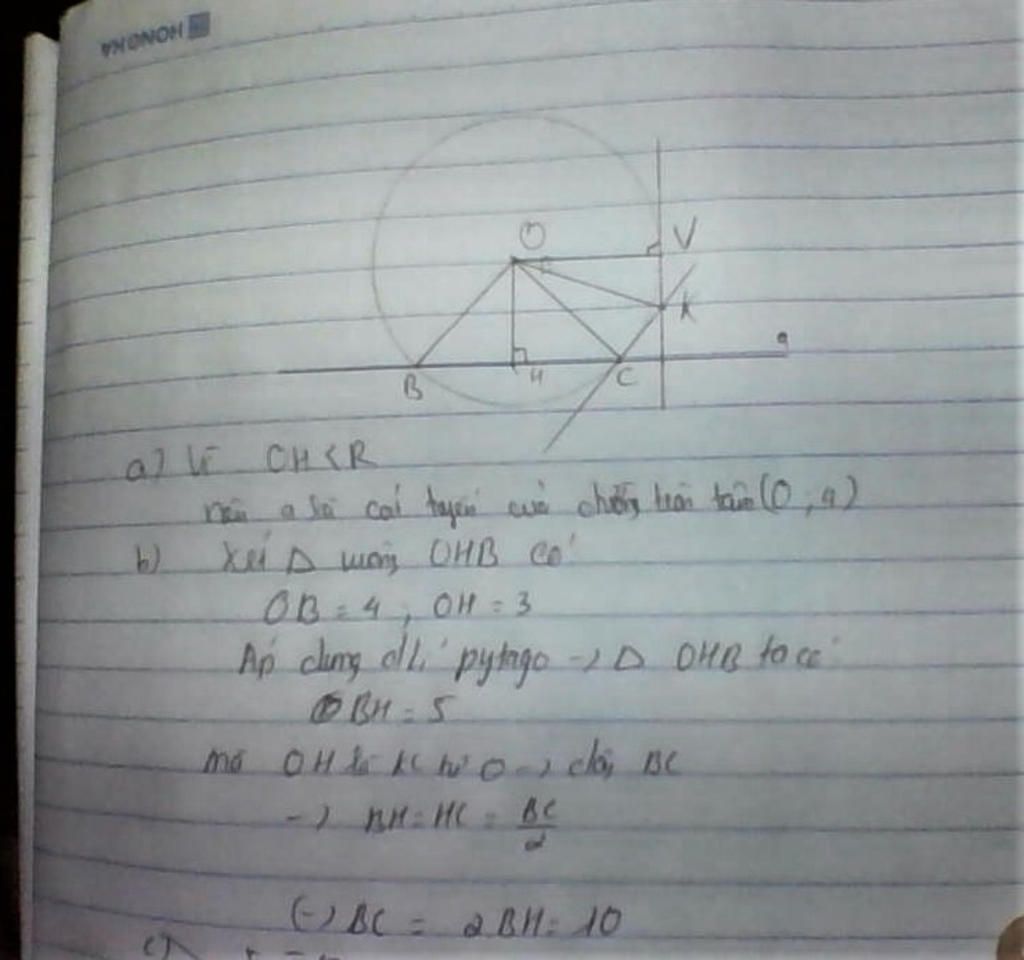 HONGHA
O
V
K
a
B
H
C
a) Vì OH < R
nên a là cát tuyến của đường tròn tâm (O, 4)
b) Xét Δ vuông OHB có
OB = 4, OH = 3
Áp dụng đlí pytago -> Δ OHB ta có
BH = 5
mà OH là k/c từ O -> dây BC
-> BH = HC = BC/2
(-) BC = 2BH = 10
c)